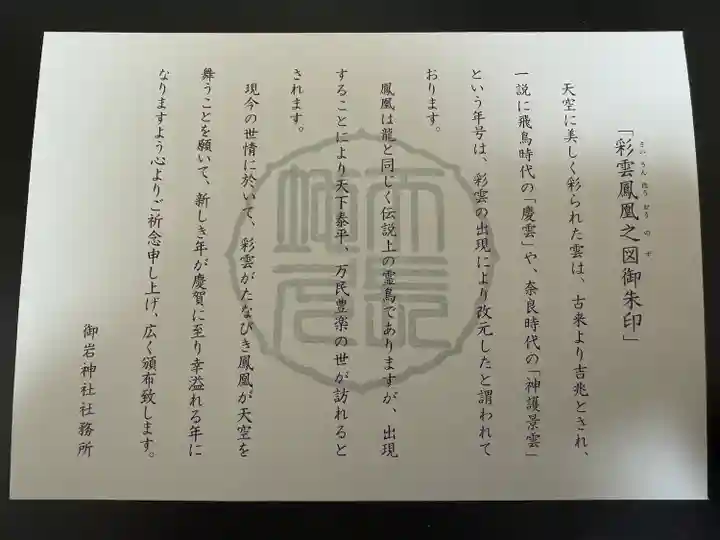 「彩雲鳳凰之図御朱印」
さいうんほうおうのず
天空に美しく彩られた雲は、古来より吉兆とされ、
一説に飛鳥時代の「慶雲」や、奈良時代の「神護景雲」
という年号は、彩雲の出現により改元したと謂われて
おります。
鳳凰は龍と同じく伝説上の霊鳥でありますが、出現
することにより天下泰平、万民豊楽の世が訪れると
されます。
現今の世情に於いて、彩雲がたなびき鳳凰が天空を
舞うことを願いて、新しき年が慶賀に至り幸溢れる年に
なりますよう心よりご祈念申し上げ、広く頒布致します。
御岩神社社務所